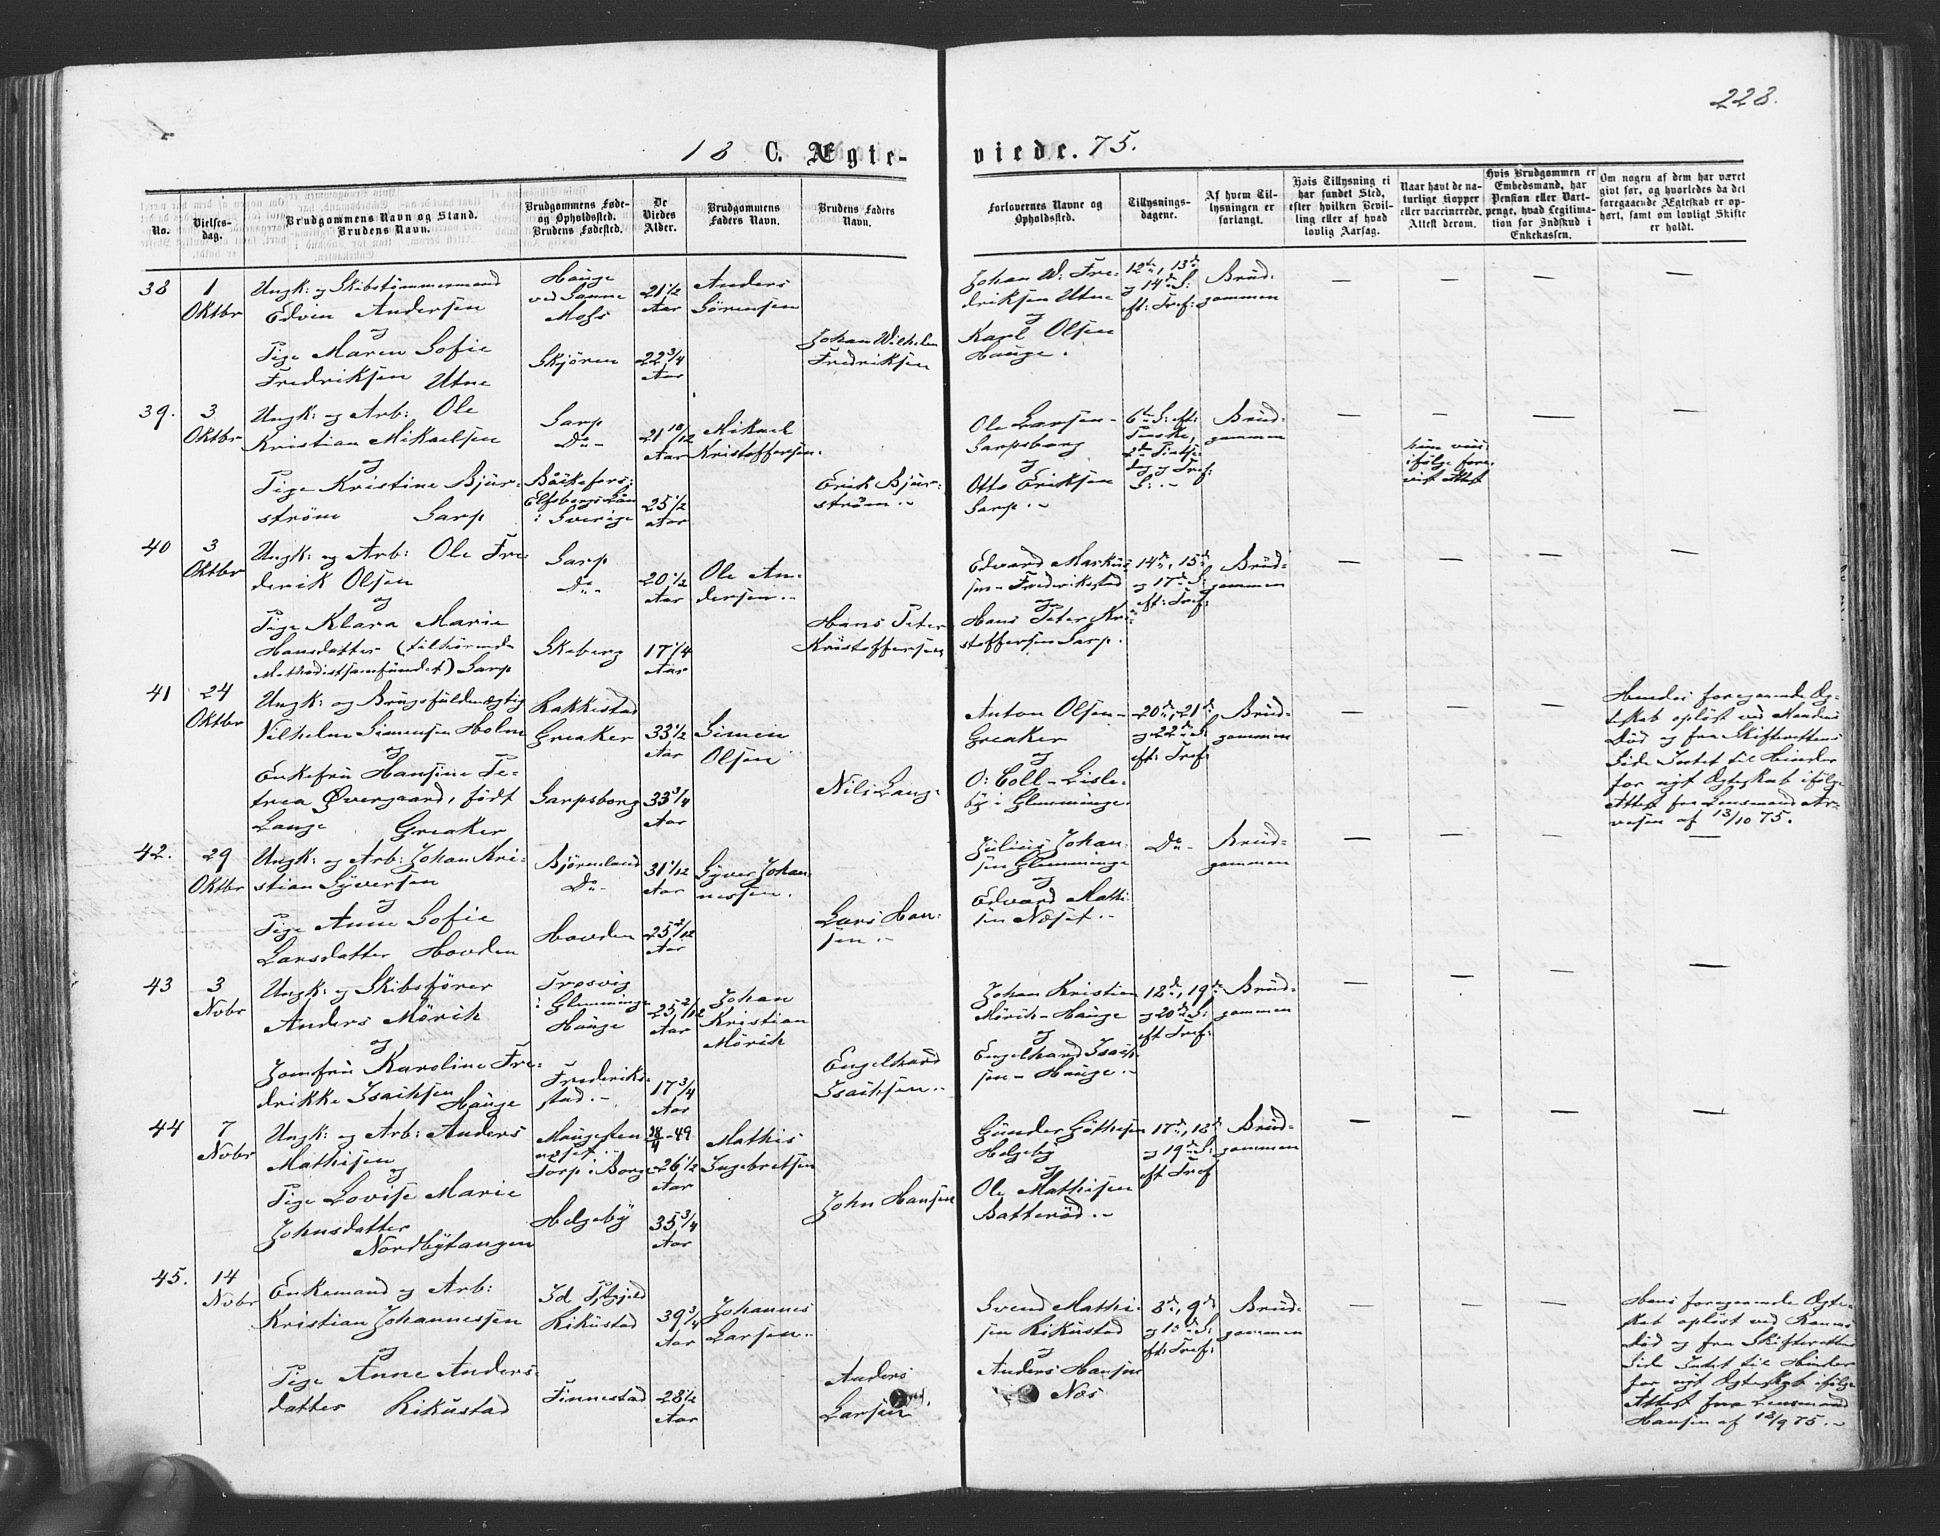 228.
18 C. Ægte-
viede. 75.
No.
Vielses-
dag.
Brudgommens Navn og Stand.
Brudens Navn.
Brudgommens Føde-
og Opholdssted.
Brudens Fødested.
De
Viedes
Alder.
Brudgommens
Faders Navn.
Brudens Faders
Navn.
Forlovernes Navne og
Opholdssted.
Tillysnings-
dagene.
Af hvem Til-
lysningen er
forlangt.
Hvis Tillysning ei
har fundet Sted,
efter hvilken Bevil-
ling eller af hvad
lovlig Aarsag.
Naar havt de na-
turlige Kopper
eller vaccinerede.
Attest derom.
Hvis Brudgommen er
Embedsmand, har
Pension eller Vart-
penge, hvad Legitima-
tion for Indskud i
Enkekassen.
Om nogen af dem har været
gift før, og hvorledes da det
foregaaende Ægteskab er op-
hørt, samt om lovligt Skifte
er holdt.
38
1
Oktbr
Ungk: og Skibstømmermand
Edvin Andersen
og
Pige Maren Sofie
Fredriksen Utne
Hauge
ved Samme
Moss
Skjören
21 1/2
Aar
22 3/4
Aar
Anders
Sörensen
Johan Wilhelm
Fredriksen
Johan W. Fre-
driksen Utne
og
Karl Olsen
Hauge.
12te, 13de
og 14de S:
eft: Tref:
Brud-
gommen
— — — —
39.
3
Oktbr
Ungk: og Arb: Ole
Kristian Mikaelsen
og
Pige Kristine Bjur-
ström Sarp
Sarp
Do -
Elfsborgs Län
i Sverige
21 10/12
Aar
25 1/2
Aar
Mikael
Kristoffersen.
Erik Bjur-
ström.
Ole Larsen -
Sarpsborg
og
Otto Eriksen
Sarp.
6te S: eft:
Paaske,
2den Pintse-
dag og Tref:
S:
Brud-
gommen
— — — —
ifølge fore-
vist Attest
40
3
Oktbr
Ungk: og Arb: Ole Fre-
derik Olsen
og
Pige Klara Marie
Hansdatter (tilhörende
Methodistsamfundet) Sarp
Sarp
Do -
Skeberg
20 1/2
Aar
17 1/4
Aar
Ole An-
dersen.
Hans Peter
Kristoffersen
Edvard Markus-
sen - Frederikstad
og
Hans Peter Kri-
stoffersen Sarp.
14de, 15de
og 17de S:
eft: Tref:
Brud-
gommen
— — — —
41
24
Oktbr
Ungk: og Brugsfuldmægtig
Vilhelm Simensen Holm
og
Enkefru Hansine Pe-
trea Øvergaard, født
Lange Greaker
Rakkestad
Greaker
Sarpsborg
33 1/2
Aar
33 3/4
Aar
Simen
Olsen
Nils Lange
Anton Olsen -
Greaker
og
O: Coll - Lisle-
by i Glemminge.
20de, 21de
og 22de S:
eft: Tref:
Brud-
gommen
— — —
Hendes foregaaende Æg-
teskab opløst ved Mandens
Død og fra Skifterettens
Side Intet til Hinder
for nyt Ægteskab ifølge
Attest fra Lensmand Ar-
vesen af 13/10 75.
42.
29
Oktbr
Ungk: og Arb: Johan Kri-
stian Syversen
og
Pige Anne Sofie
Larsdatter Hovden
Bjørneland
Do -
Hovden
31 1/12
Aar
25 2/12
Aar
Syver Johan-
nessen.
Lars Han-
sen.
Julius Johan-
sen Glemminge
og
Edvard Mathi-
sen Næset.
Do -
Brud-
gommen
— — — —
43
3
Novbr
Ungk: og Skibsfører
Anders Mörich
og
Jomfru Karoline Fre-
drikke Isachsen Hauge
Trosvig
i Glemminge
Hauge
Frederiks-
stad.
25 2/12
Aar
17 3/4
Aar
Johan
Kristian
Mörich
Engelhard
Isachsen.
Johan Kristian
Mörich - Hauge
og
Engelhard Isach-
sen - Hauge.
18de, 19de
og 20de S:
eft Tref:
Brud-
gommen
— — — —
44
7
Novbr
Ungk: og Arb: Anders
Mathisen
og
Pige Lovise Marie
Johnsdatter
Nordbytangen
Torp i Borge
Helgeby
26 1/2
Aar
35 3/4
Aar
Mathis
Ingebretsen
John Hansen
Helgeby
og
Ole Mathisen
Batteröd.
17de, 18de
og 19de S:
eft Tref
Brud-
gommen
— — — —
45.
14
Novbr
Enkemand og Arb:
Kristian Johannessen
og
Pige Anne Anders-
datter Rikustad
Rikustad
Finnestad
39 3/4
Aar
28 1/2
Aar
Johannes
Larsen.
Anders
Larsen
Svend Mathi-
sen Rikustad
og
Anders Hansen
Næs
8de, 9de
og 10de S:
eft: Tref:
Brud-
gommen
— — —
Hans foregaaende Ægte-
skab opløst ved Konens
Død og fra Skifterettens
Side Intet til Hinder
for nyt Ægteskab ifølge
Attest fra Lensmand
Hansen af 13/9 75.